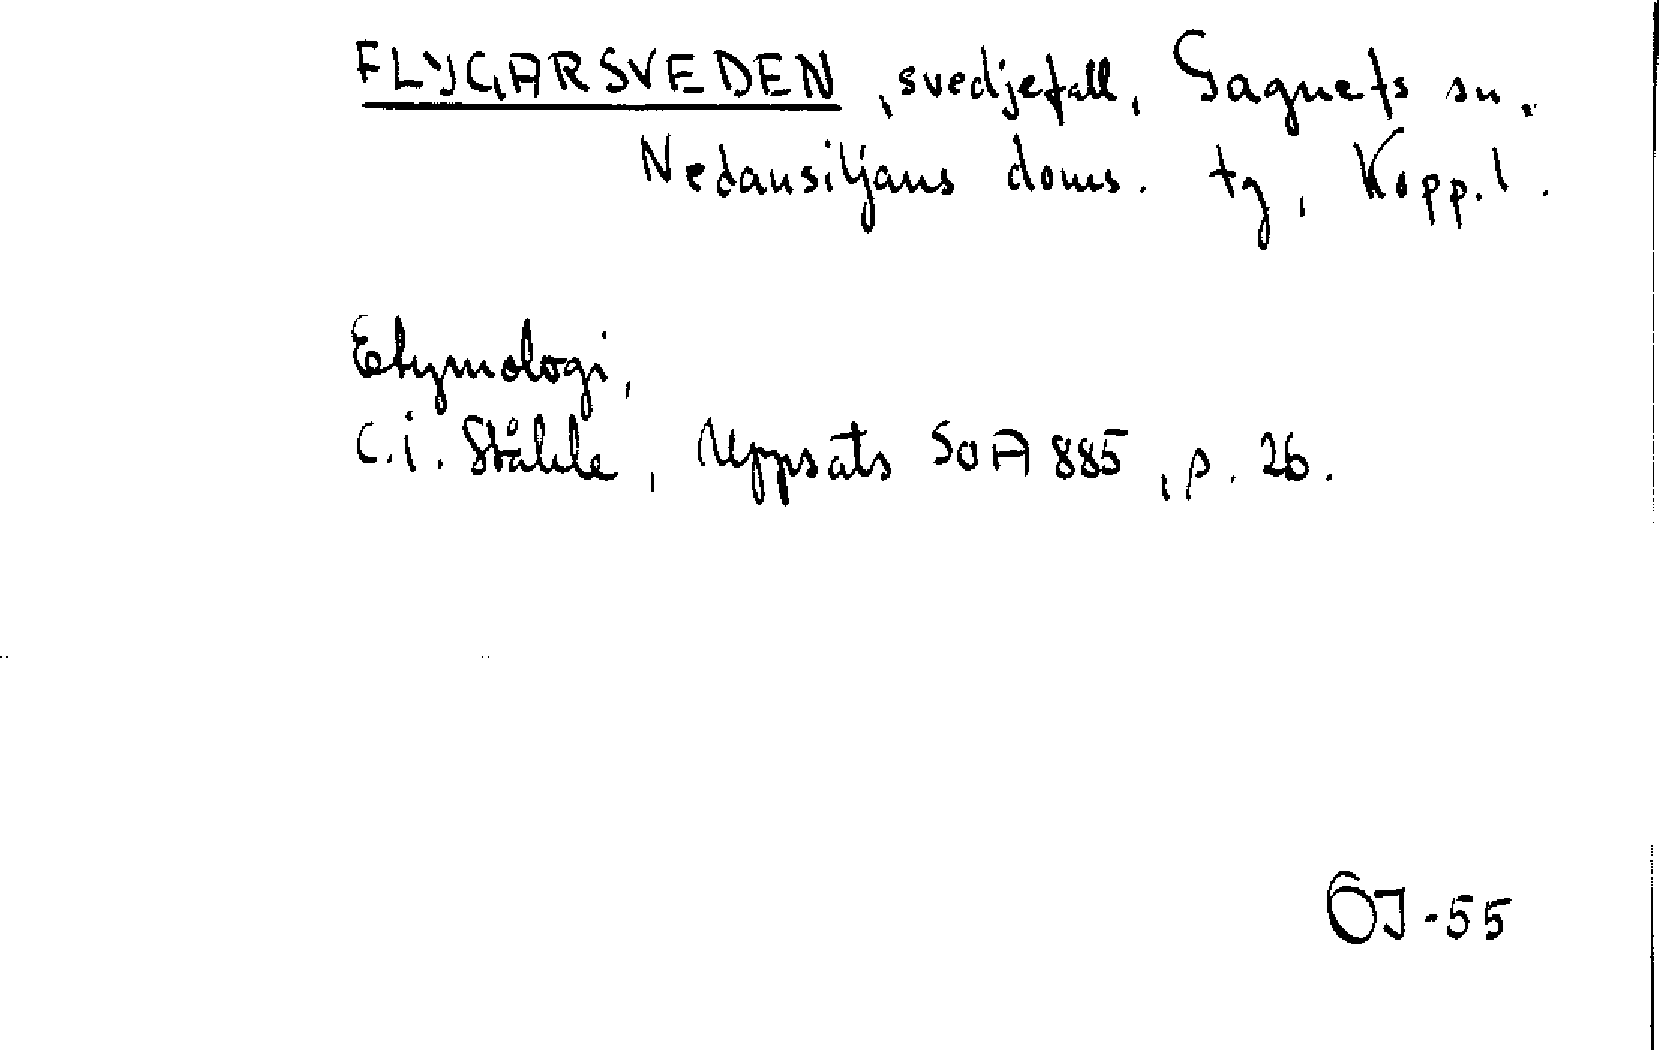 FLYGARSVEDEN, svedjefall, Gagnefs sn.
Nedansiljans doms. tg, Kopp. l.
Etymologi,
C.I. Ståhle, Uppsats SOA 885, p. 26.
OJ-55